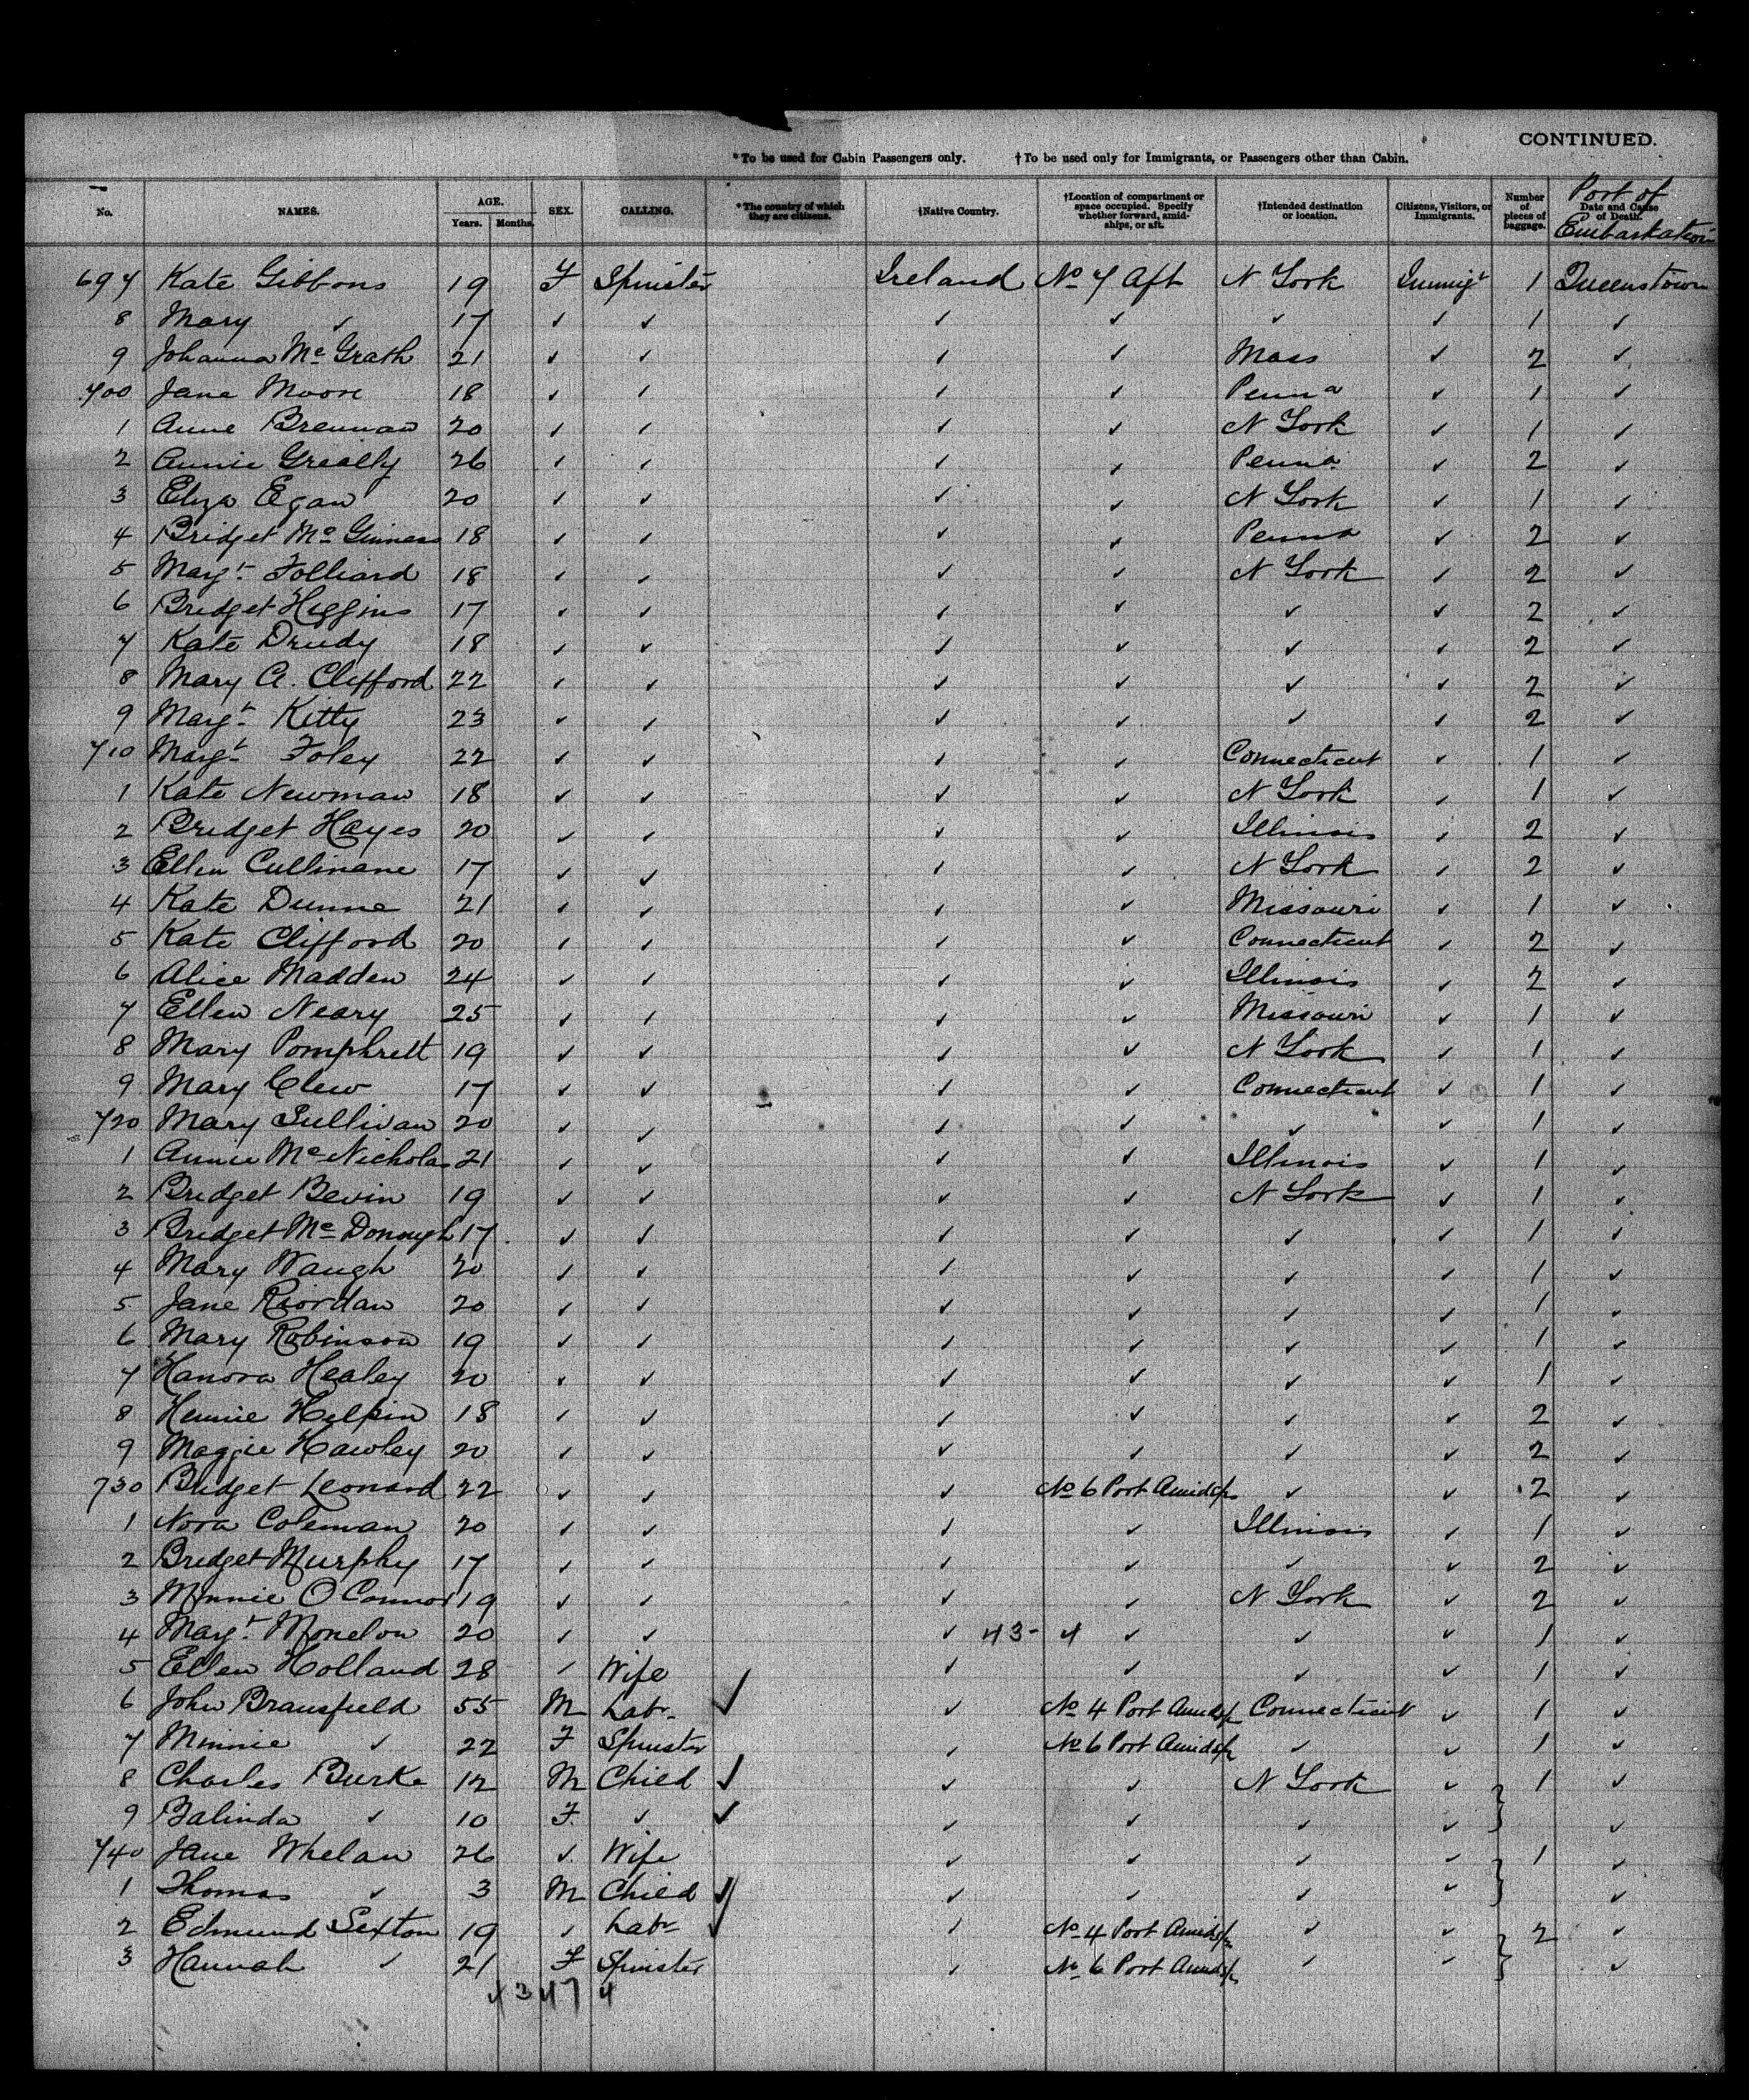 CONTINUED.
*To be used for Cabin Passengers only. †To be used only for Immigrants, or Passengers other than Cabin.
No. NAMES. AGE. Years. Months. SEX. CALLING. *The country of which they are citizens. †Native Country. †Location of compartment or space occupied. Specify whether forward, amidships, or aft. †Intended destination or location. Citizens, Visitors, or Immigrants. Number of pieces of baggage. Date and Cause of Death. Port of Embarkation
697 Kate Gibbons 19 F Spinster Ireland No 7 Aft N York Immigt 1 Queenstown
8 Mary ✓ 17 ✓ ✓ ✓ ✓ ✓ ✓ 1 ✓
9 Johanna Mc Grath 21 ✓ ✓ ✓ ✓ Mass ✓ 2 ✓
700 Jane Moore 18 ✓ ✓ ✓ ✓ Penna ✓ 1 ✓
1 Anne Brennan 20 ✓ ✓ ✓ ✓ N York ✓ 1 ✓
2 Annie Greally 26 ✓ ✓ ✓ ✓ Penna ✓ 2 ✓
3 Eliza Egan 20 ✓ ✓ ✓ ✓ N York ✓ 1 ✓
4 Bridget Mc Guiness 18 ✓ ✓ ✓ ✓ Penna ✓ 2 ✓
5 Margt Folliard 18 ✓ ✓ ✓ ✓ N York ✓ 2 ✓
6 Bridget Higgins 17 ✓ ✓ ✓ ✓ ✓ ✓ 2 ✓
7 Kate Drudy 18 ✓ ✓ ✓ ✓ ✓ ✓ 2 ✓
8 Mary A. Clifford 22 ✓ ✓ ✓ ✓ ✓ ✓ 2 ✓
9 Margt Kitty 23 ✓ ✓ ✓ ✓ ✓ ✓ 2 ✓
710 Margt Foley 22 ✓ ✓ ✓ ✓ Connecticut ✓ 1 ✓
1 Kate Newman 18 ✓ ✓ ✓ ✓ N York ✓ 1 ✓
2 Bridget Hayes 20 ✓ ✓ ✓ ✓ Illinois ✓ 2 ✓
3 Ellen Cullinane 17 ✓ ✓ ✓ ✓ N York ✓ 2 ✓
4 Kate Dunne 21 ✓ ✓ ✓ ✓ Missouri ✓ 1 ✓
5 Kate Clifford 20 ✓ ✓ ✓ ✓ Connecticut ✓ 2 ✓
6 Alice Madden 24 ✓ ✓ ✓ ✓ Illinois ✓ 2 ✓
7 Ellen Neary 25 ✓ ✓ ✓ ✓ Missouri ✓ 1 ✓
8 Mary Pomphrett 19 ✓ ✓ ✓ ✓ N York ✓ 1 ✓
9 Mary Clew 17 ✓ ✓ ✓ ✓ Connecticut ✓ 1 ✓
720 Mary Sullivan 20 ✓ ✓ ✓ ✓ ✓ ✓ 1 ✓
1 Annie Mc Nicholas 21 ✓ ✓ ✓ ✓ Illinois ✓ 1 ✓
2 Bridget Bevin 19 ✓ ✓ ✓ ✓ N York ✓ 1 ✓
3 Bridget Mc Donough 17 ✓ ✓ ✓ ✓ ✓ ✓ 1 ✓
4 Mary Waugh 20 ✓ ✓ ✓ ✓ ✓ ✓ 1 ✓
5 Jane Riordan 20 ✓ ✓ ✓ ✓ ✓ ✓ 1 ✓
6 Mary Robinson 19 ✓ ✓ ✓ ✓ ✓ ✓ 1 ✓
7 Hanora Healey 20 ✓ ✓ ✓ ✓ ✓ ✓ 1 ✓
8 Hennie Helpin 18 ✓ ✓ ✓ ✓ ✓ ✓ 2 ✓
9 Maggie Hawley 20 ✓ ✓ ✓ ✓ ✓ ✓ 2 ✓
730 Bridget Leonard 22 ✓ ✓ ✓ No 6 Port Amidsps ✓ ✓ 2 ✓
1 Nora Coleman 20 ✓ ✓ ✓ ✓ Illinois ✓ 1 ✓
2 Bridget Murphy 17 ✓ ✓ ✓ ✓ ✓ ✓ 2 ✓
3 Minnie O Connor 19 ✓ ✓ ✓ ✓ N York ✓ 2 ✓
4 Margt 20 ✓ ✓ ✓ 43- 4 ✓ ✓ ✓ 1 ✓
5 Ellen Holland 28 ✓ Wife ✓ ✓ ✓ ✓ 1 ✓
6 John Bransfield 55 M Labr ✓ ✓ No 4 Port Amidsps Connecticut ✓ 1 ✓
7 Minnie ✓ 22 F Spinster ✓ No 6 Port Amidsps ✓ ✓ 1 ✓
8 Charles Burke 12 M Child ✓ ✓ ✓ N York ✓ 1 ✓
9 Balinda ✓ 10 F ✓ ✓ ✓ ✓ ✓ ✓ ✓
740 Jane Whelan 26 ✓ Wife ✓ ✓ ✓ ✓ 1 ✓
1 Thomas ✓ 3 M Child ✓ ✓ ✓ ✓ ✓ ✓
2 Edmund Sexton 19 ✓ Labr ✓ ✓ No 4 Port Amidsps ✓ ✓ 2 ✓
3 Hannah ✓ 21 F Spinster ✓ No 6 Port Amidsps ✓ ✓ ✓
4